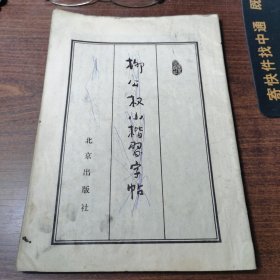 柳公权小楷習字帖
北京出版社
寄快件找中通